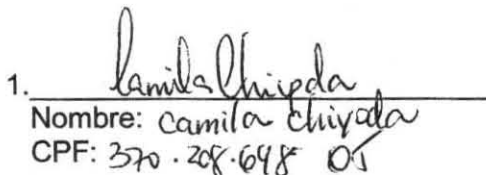 1. Camila Chiyoda
Nombre: Camila Chiyoda
CPF: 370.208.648 05